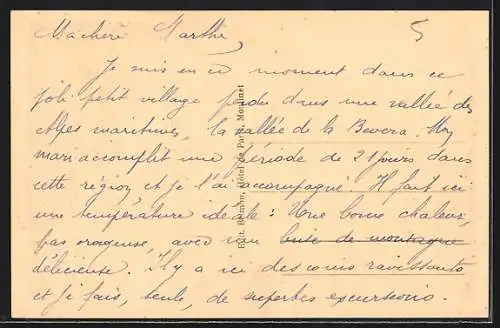 Ma chère Marthe, 5
Je suis en ce moment dans ce
joli petit village perdu dans une vallée des
Alpes maritimes, la vallée de la Bevera. Mon
mari accomplit une période de 21 jours dans
cette région et je l'ai accompagné. Il fait ici
une température idéale : Une bonne chaleur,
pas orageuse, avec une brise de montagne
délicieuse. Il y a ici des coins ravissants
et je fais, seule, de superbes excursions.
Edit. Hôtel de Paris, Moulinet